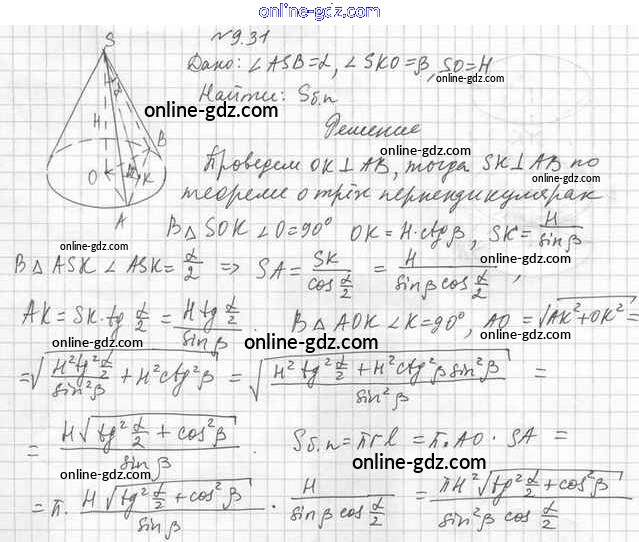 online-gdz.com
№9.31
Дано: ∠ASB=α, ∠SKO=β, SO=H
Найти: Sб.п
online-gdz.com
Решение
online-gdz.com
Проведем OK⊥AB, тогда SK⊥AB по
online-gdz.com
теореме о трёх перпендикулярах
S
α
H
B
O
K
A
В △ SOK ∠O=90° OK = H·ctgβ, SK = H/sinβ
online-gdz.com
online-gdz.com
В △ ASK ∠ASK = α/2 => SA = SK/cos α/2 = H/(sinβ cos α/2),
online-gdz.com
AK = SK·tg α/2 = H tg α/2 / sinβ. В △ AOK ∠K=90°, AO = √(AK²+OK²) =
online-gdz.com
online-gdz.com
= √(H² tg² α/2 / sin²β + H² ctg²β) = √((H² tg² α/2 + H² ctg²β sin²β) / sin²β) =
online-gdz.com
= H√(tg² α/2 + cos²β) / sinβ. Sб.п = πrl = π·AO·SA =
online-gdz.com
online-gdz.com
= π· H√(tg² α/2 + cos²β) / sinβ · H/(sinβ cos α/2) = πH²√(tg² α/2 + cos²β) / (sin²β cos α/2)
online-gdz.com
online-gdz.com